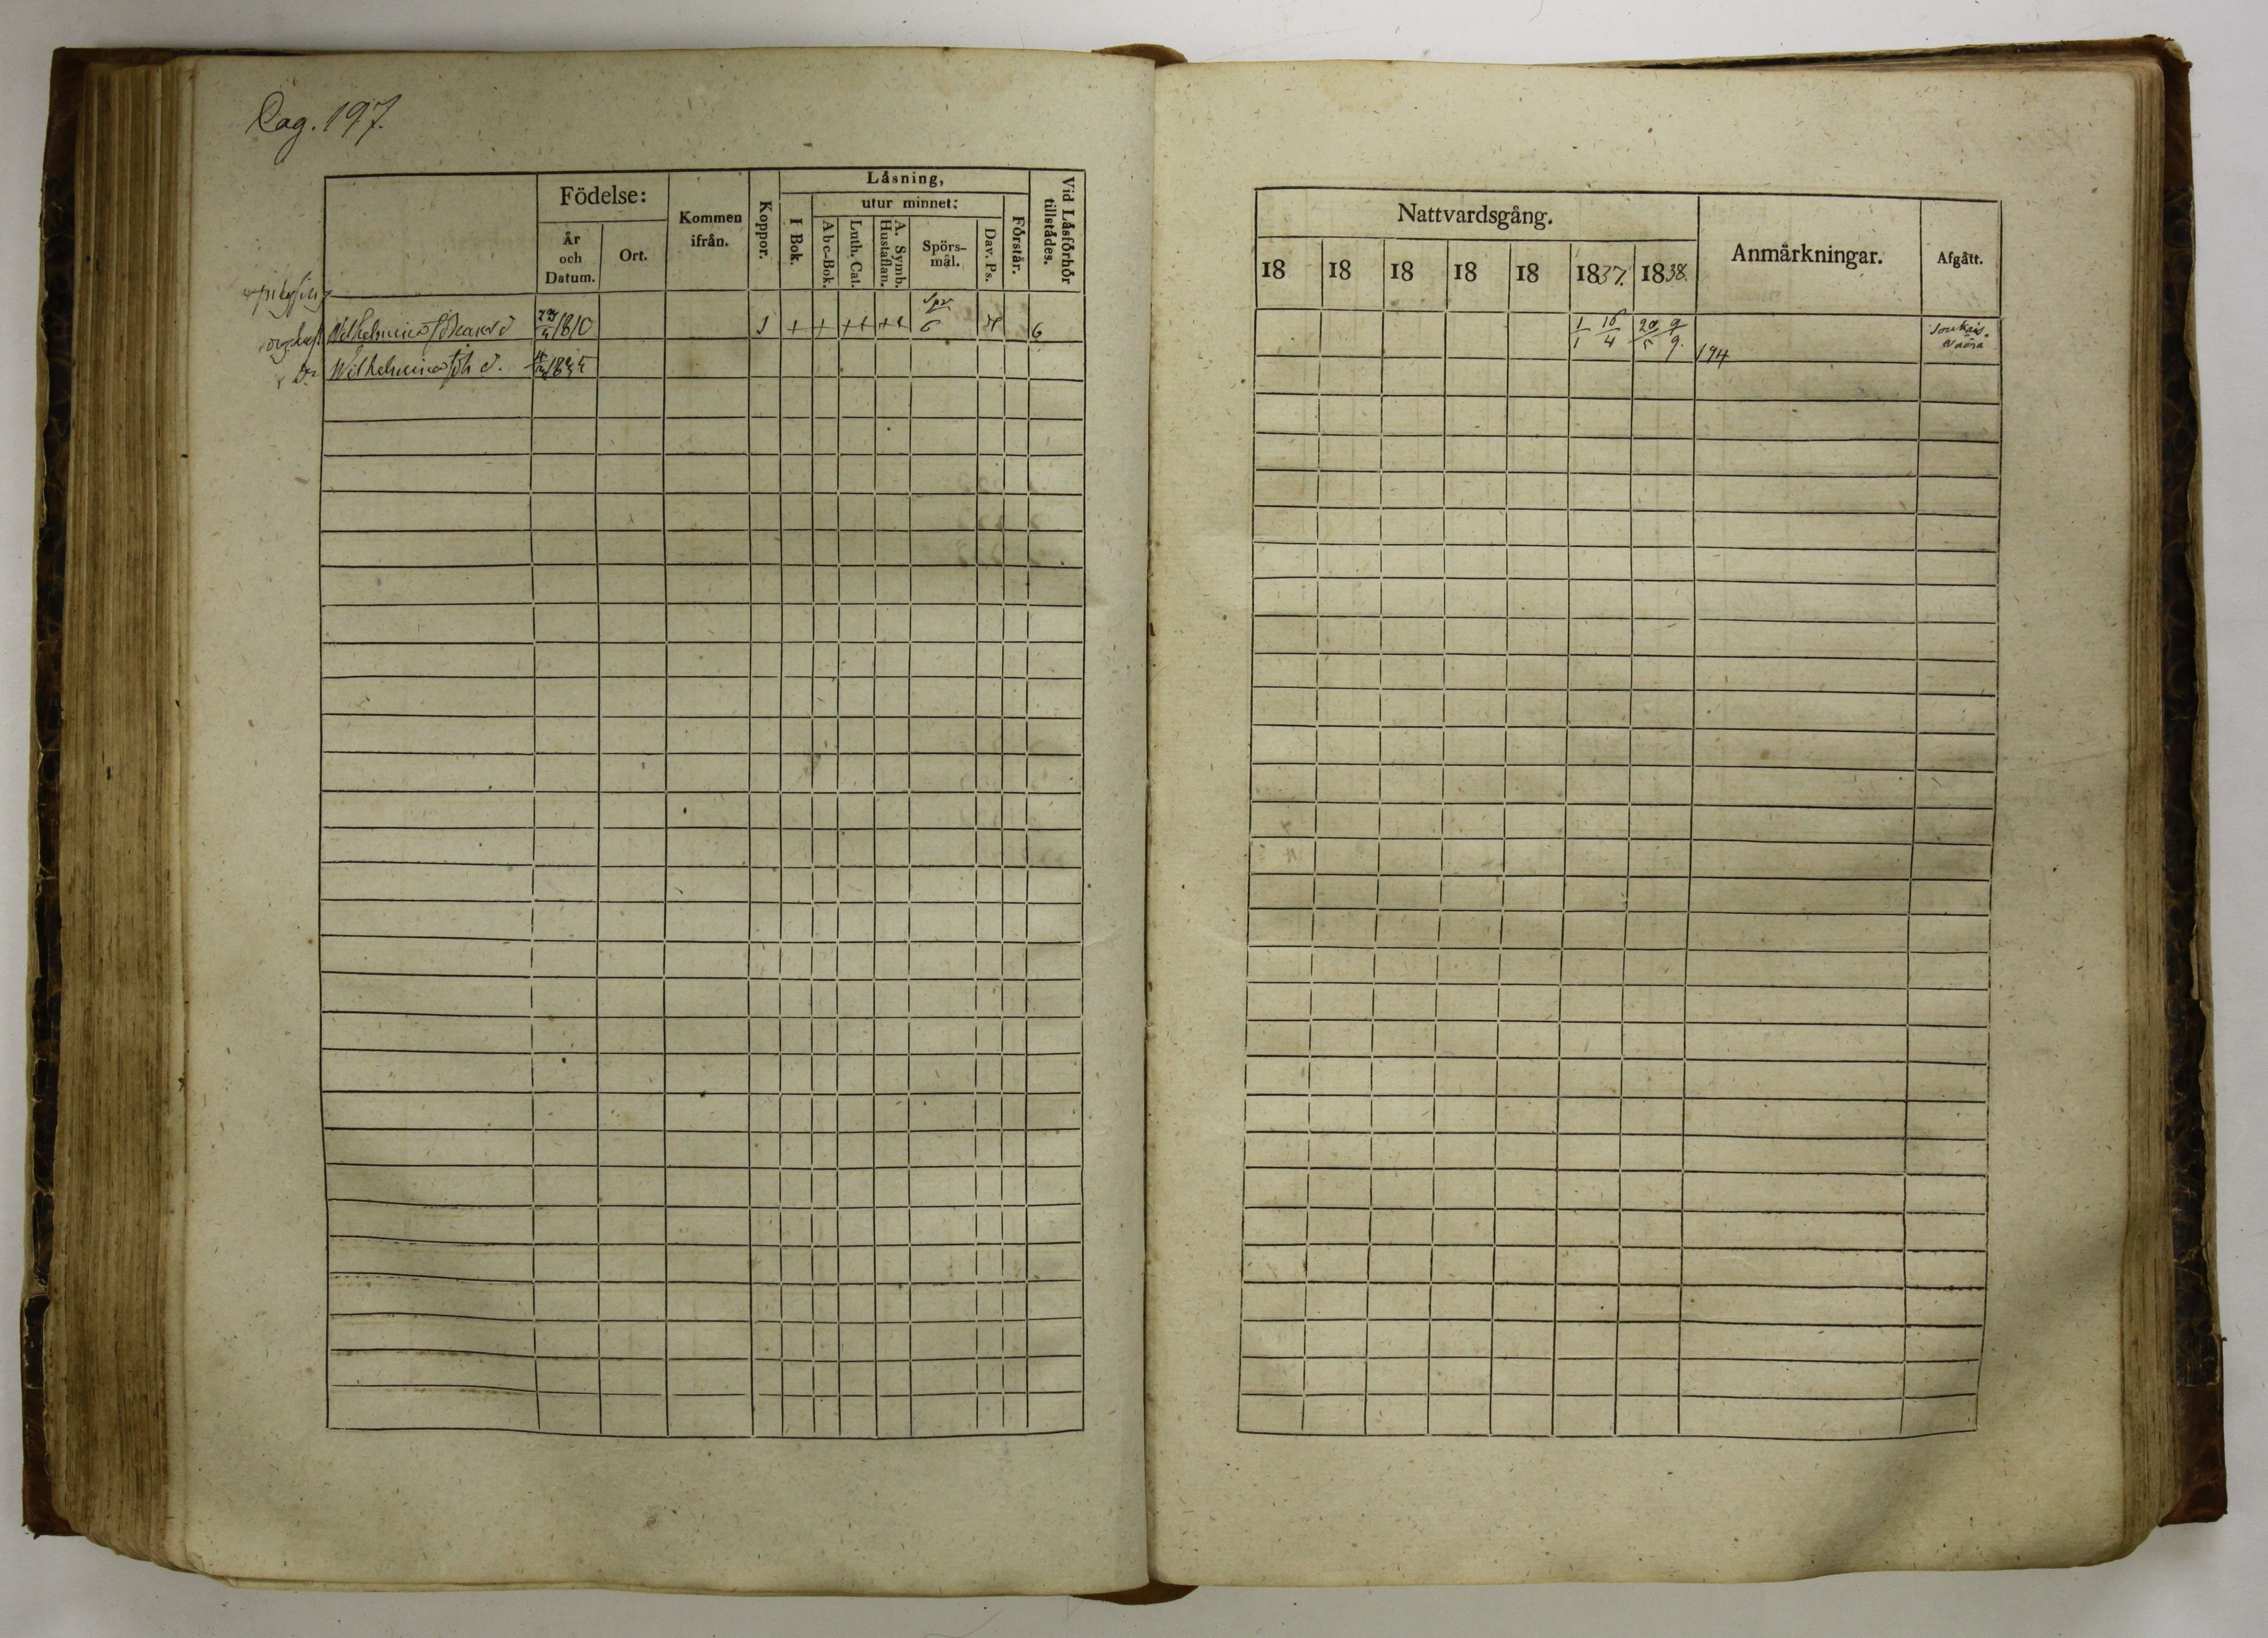 Pag. 197.
Födelse:
År
och
Datum.
Ort.
Kommen
ifrån.
Koppor.
Läsning,
utur minnet:
I Bok.
Abc-Bok.
Luth. Cat.
A. Symb.
Hustaflan.
Spörs-
mål.
Dav. Ps.
Förstår.
Vid Läsförhör
tillstådes.
1810
1 + + ++ ++ 6 6
Wilhelmina
Nattvardsgång.
18 18 18 18 18 1837. 1838.
Anmärkningar.
Afgått.
1/1 16/4 20/5 9/9.
194